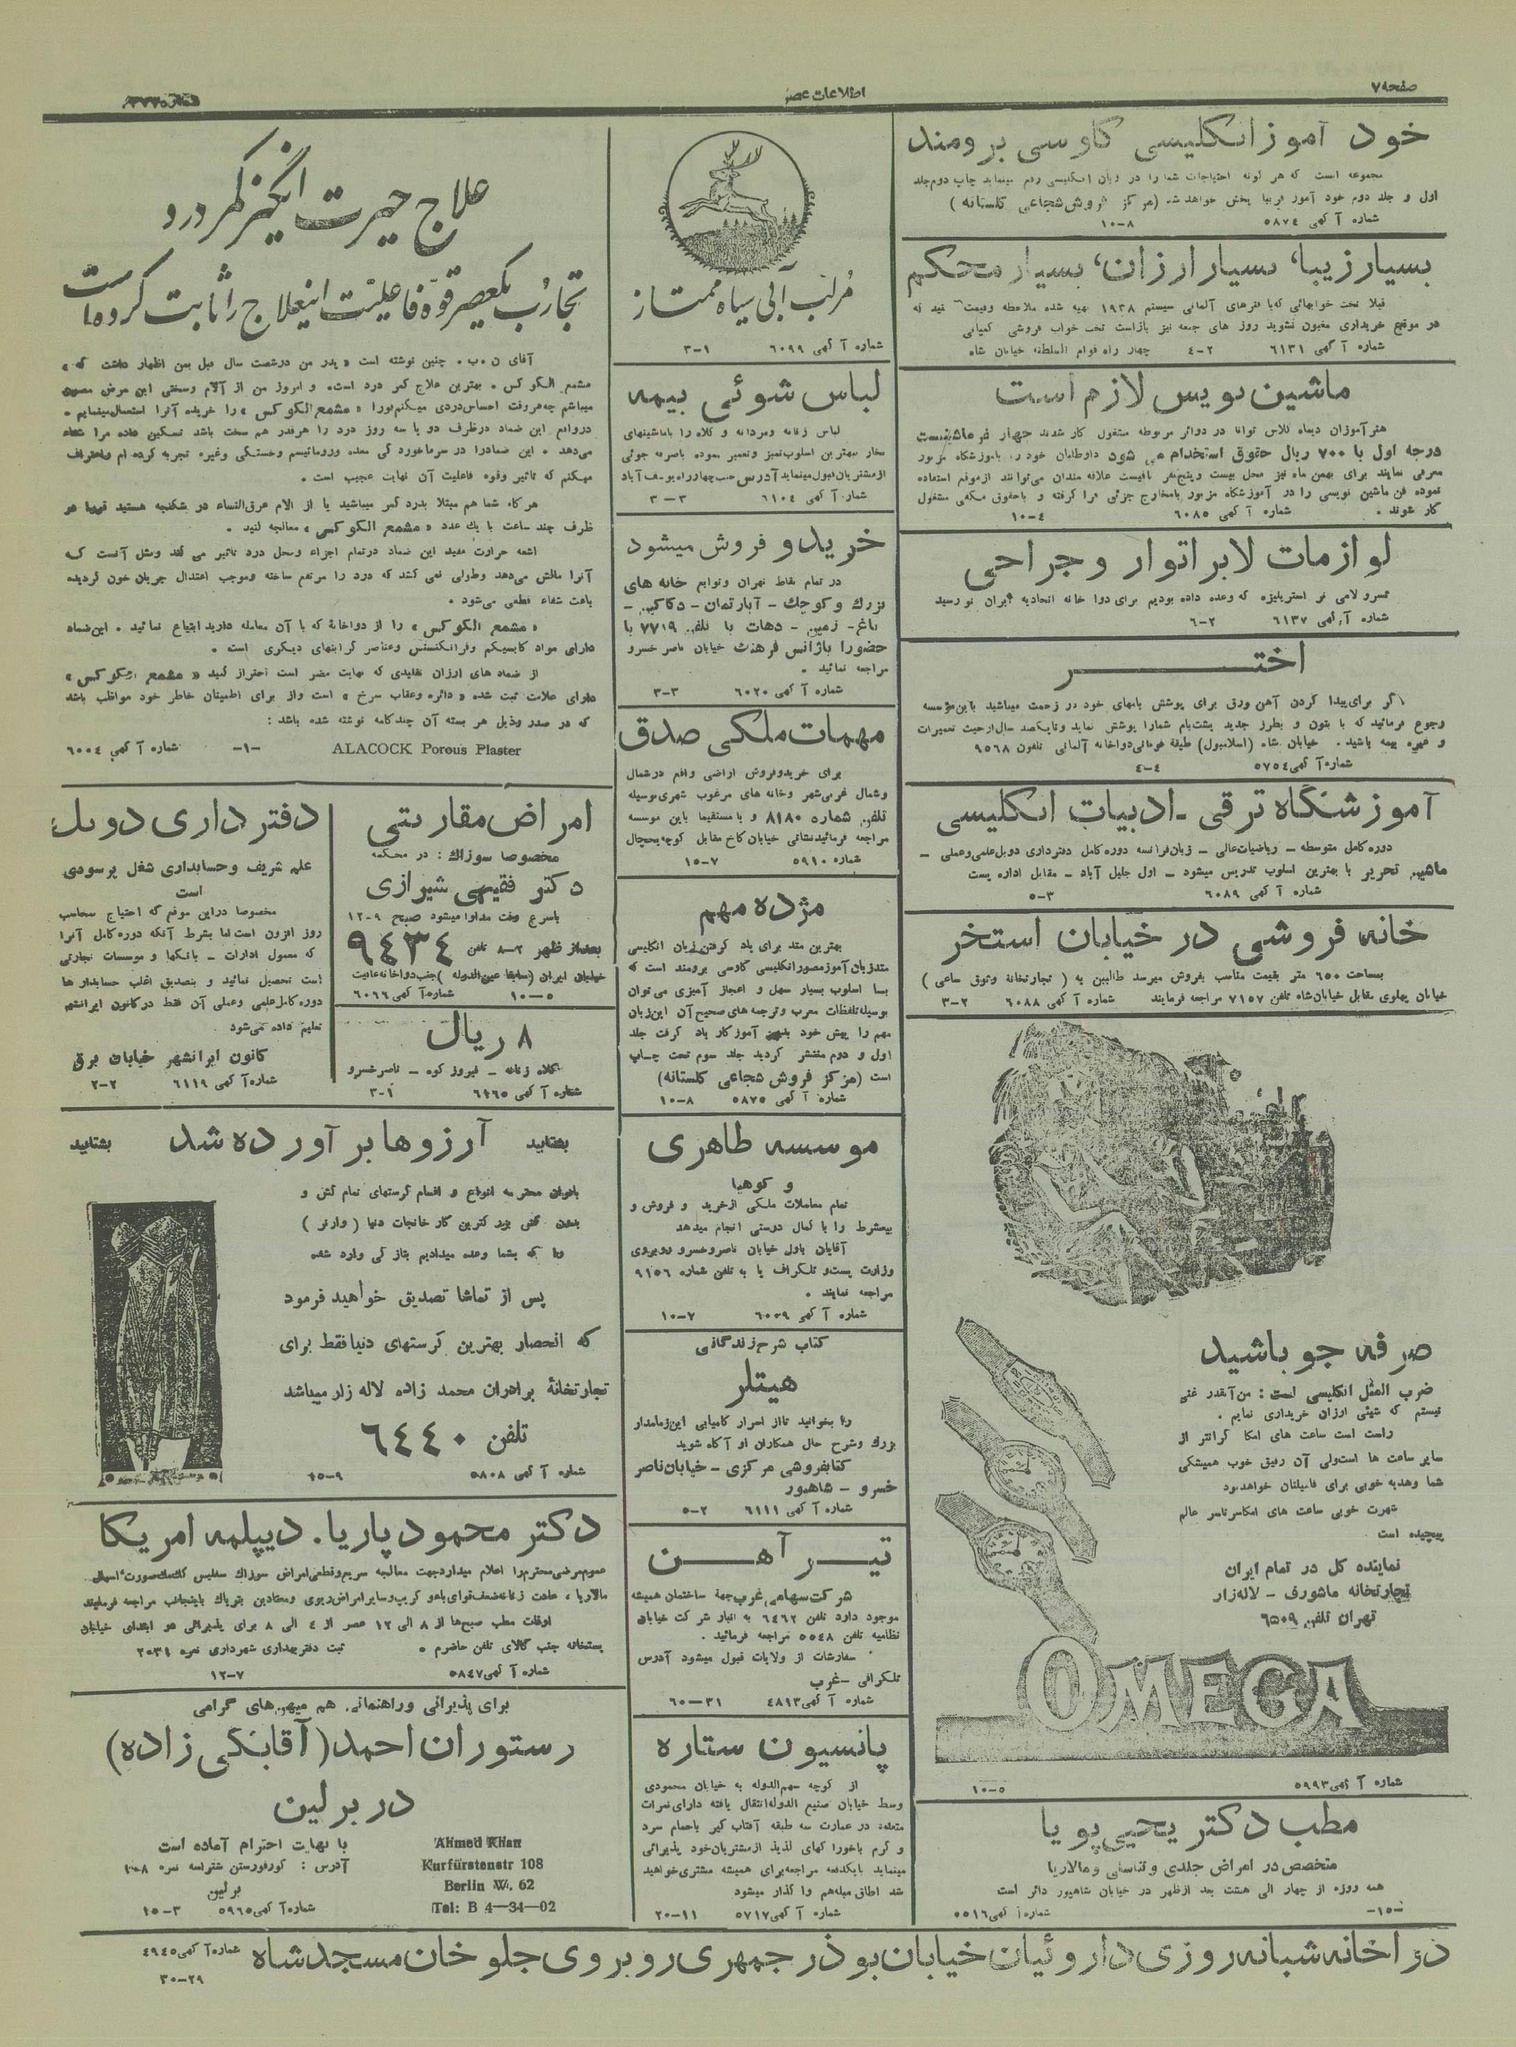 صفحه ۷
اطلاعات عصر
خود آموز انگلیسی کاوسی برومند
مجموعه است که هر گونه احتیاجات شما را در زبان انگلیسی رفع مینماید چاپ دوم جلد
اول و جلد دوم خود آموز قریبا پخش خواهد شد (مرکز فروش شجاعی گلستانه)
شماره آگهی ۵۸۷۴ ۸-۱۰
بسیار زیبا، بسیار ارزان، بسیار محکم
قبلا تخت خوابهائی که با فنرهای آلمانی سیستم ۱۹۳۸ تهیه شده ملاحظه وقیمت کنید که
در موقع خریداری مغبون نشوید روز های جمعه نیز بازاست تخت خواب فروشی کمپانی
چهار راه قوام السلطنه خیابان شاه ۲-۴ شماره آگهی ۶۱۳۱
ماشین نویس لازم است
هنرآموزان دیماه کلاس توانا در دوائر مربوطه مشغول کار شدند چهار نفر ماشینیست
درجه اول با ۷۰۰ ریال حقوق استخدام می شود داوطلبان خود را بآموزشگاه مزبور
معرفی نمایند برای بهمن ماه نیز محل بیست وپنج نفر باقیست علاقه مندان می‌توانند از موقع استفاده
نموده فن ماشین نویسی را در آموزشگاه مزبور بامخارج جزئی فرا گرفته و باحقوق مکفی مشغول
کار شوند . شماره آگهی ۶۰۸۵ ۴-۱۰
لوازمات لابراتوار وجراحی
شماره آگهی ۶۱۳۷ ۲-۶
اختر
اگر برای پیدا کردن آهن ورق برای پوشش بامهای خود در زحمت میباشید باین مؤسسه
رجوع فرمائید که با بتون و بطرز جدید پشت‌بام شمارا پوشش نماید وتایکصد سال ازحیث تعمیرات
و غیره بیمه باشید . خیابان شاه (اسلامبول) طبقه فوقانی دواخانه آلمانی تلفون ۹۵۶۸
شماره آگهی ۵۷۵۴ ۴-۴
آموزشگاه ترقی - ادبیات انگلیسی
دوره کامل متوسطه - ریاضیات عالی - زبان فرانسه دوره کامل دفترداری دوبل علمی وعملی -
ماشین تحریر با بهترین اسلوب تدریس میشود - اول جلیل آباد - مقابل اداره پست
شماره آگهی ۶۰۸۹ ۳-۵
خانه فروشی در خیابان استخر
بمساحت ۶۵۰ متر بقیمت مناسب بفروش میرسد طالبین به (تجارتخانه وثوق ساعی)
خیابان پهلوی مقابل خیابان شاه تلفن ۷۱۵۷ مراجعه فرمایند شماره آگهی ۶۰۸۸ ۲-۳
صرفه جو باشید
ضرب المثل انگلیسی است : من آنقدر غنی
نیستم که شیئی ارزان خریداری نمایم .
راست است ساعت های امگا گرانتر از
سایر ساعت ها است ولی آن رفیق خوب همیشگی
شما وهدیه خوبی برای فامیلتان خواهد بود
شهرت خوبی ساعت های امگا سرتاسر عالم
پیچیده است
نماینده کل در تمام ایران
تجارتخانه ماشورف - لاله زار
تهران تلفن ۶۵۰۹
OMEGA
شماره آگهی ۵۹۹۳ ۵-۱۰
مطب دکتر یحیی پویا
متخصص در امراض جلدی وتناسلی ومالاریا
همه روزه از چهار الی هشت بعد ازظهر در خیابان شاهپور دائر است
شماره آگهی ۵۵۱۶ -۱۵-
مرکب آبی سیاه ممتاز
شماره آگهی ۶۰۹۹ ۱-۳
لباس شوئی بیمه
لباس زنانه ومردانه و کلاه را باماشینهای
بخار ببهترین اسلوب تمیز وتعمیر نموده باصرفه جوئی
ازمشتریان قبول مینماید آدرس حسب چهارراه یوسف آباد
شماره آگهی ۶۱۰۴ ۳-۳
خرید و فروش میشود
در تمام نقاط تهران وتوابع خانه های
بزرگ وکوچک - آپارتمان - دکاکین -
باغ - زمین - دهات با تلفن ۷۷۱۹ یا
حضورا بآژانس فرهنگ خیابان ناصرخسرو
مراجعه نمائید .
شماره آگهی ۶۰۲۰ ۳-۳
مهمات ملکی صدق
برای خرید وفروش اراضی واقع درشمال
وشمال غربی شهر وخانه های مرغوب شهری بوسیله
تلفن شماره ۸۱۸۰ و یا مستقیما باین موسسه
مراجعه فرمائید نشانی خیابان کاخ مقابل کوچه یخچال
شماره ۵۹۱۰ ۷-۱۵
مژده مهم
بهترین متد برای یاد گرفتن زبان انگلیسی
متد زبان آموز مصور انگلیسی کاوسی برومند است که
بسا اسلوب بسیار سهل و اعجاز آمیزی می توان
بوسیله تلفظات معرب وترجمه های صحیح آن این زبان
مهم را پیش خود بدون آموزگار یاد گرفت جلد
اول و دوم منتشر گردید جلد سوم تحت چاپ
است (مرکز فروش شجاعی گلستانه)
شماره آگهی ۵۸۷۵ ۸-۱۰
موسسه طاهری
و کوهپا
تمام معاملات ملکی ازخرید و فروش و
بیعشرط را با کمال درستی انجام میدهد
آقایان باول خیابان ناصرخسرو روبروی
وزارت پست و تلگراف یا به تلفن شماره ۹۱۵۶
مراجعه نمایند .
شماره آگهی ۶۰۰۹ ۷-۱۰
کتاب شرح زندگانی
هیتلر
را بخوانید تااز اسرار کامیابی این زمامدار
بزرگ وشرح حال همکاران او آگاه شوید
کتابفروشی مرکزی - خیابان ناصر
خسرو - شاهپور
شماره آگهی ۶۱۱۱ ۲-۵
تیر آهن
شرکت سهامی غرب جهة ساختمان همیشه
موجود دارد تلفن ۶۴۶۲ به انبار شرکت خیابان
نظامیه تلفن ۵۵۴۸ مراجعه فرمائید .
سفارشات از ولایات قبول میشود آدرس
تلگرافی - غرب
شماره آگهی ۴۸۹۳ ۳۱-۶۰
پانسیون ستاره
از کوچه سهم الدوله به خیابان محمودی
وسط خیابان صنیع الدوله انتقال یافته دارای نمرات
متعدد در عمارت سه طبقه آفتاب گیر باحمام سرد
و گرم باخوراکهای لذیذ ازمشتریان خود پذیرائی
مینماید بایکدفعه مراجعه برای همیشه مشتری خواهید
شد اطاق مبله هم واگذار میشود
شماره آگهی ۵۷۱۷ ۱۱-۲۰
علاج حیرت انگیز کمر درد
تجارب یکعصر قوه فاعلیت اینعلاج را ثابت کرده است
آقای ن.ب. چنین نوشته است «پدر من درشصت سال قبل بمن اظهار داشت که»
مشمع الکوکس . بهترین علاج کمر درد است . و امروز من از آلام وسختی این مرض مصون
میباشم چه هروقت احساس دردی میکنم فورا «مشمع الکوکس» را خریده آنرا استعمال مینمایم .
درواقع این ضماد درظرف دو یا سه روز درد را هرقدر هم سخت باشد تسکین داده مرا شفاء
می‌دهد . این ضمادرا در سرماخوردگی معده وروماتیسم وخستگی وغیره تجربه کرده ام واعتراف
میکنم که تاثیر وقوه فاعلیت آن نهایت عجیب است .
هرگاه شما هم مبتلا بدرد کمر میباشید یا از الام عرق النساء در شکنجه هستید قریبا در
ظرف چند ساعت با یك عدد «مشمع الکوکس» معالجه کنید .
اشعه حرارت مفید این ضماد درتمام اجزاء ومحل درد تاثیر می کند ومثل آنست که
آنرا مالش می‌دهد وطولی نمی کشد که درد را مرتفع ساخته وموجب اعتدال جریان خون گردیده
باعث شفاء قطعی می‌شود .
«مشمع الکوکس» را از دواخانه که با آن معامله دارید ابتیاع نمائید . این ضماد
دارای مواد کاپسیکم وفرانکنسنس وعناصر گرانبهای دیگری است .
از ضماد های ارزان تقلیدی که نهایت مضر است احتراز کنید «مشمع الکوکس»
دارای علامت ثبت شده «دائره وعقاب سرخ» است واز برای اطمینان خاطر خود مواظب باشید
که در صدر وذیل هر بسته آن چند کلمه نوشته شده باشد :
ALACOCK Porous Plaster
-۱- شماره آگهی ۶۰۰۴
امراض مقاربتی
مخصوصا سوزاك : در محکمه
دکتر فقیهی شیرازی
باسرع وقت مداوا میشود صبح ۹-۱۲
بعداز ظهر ۲-۸ تلفن ۹۴۳۴
خیابان ایران (سابقا عین الدوله) جنب دواخانه عنایت
شماره آگهی ۶۰۶۶ ۵-۱۰
۸ ریال
کلاه زنانه - فیروز کوه - ناصرخسرو
۱-۳
دفترداری دوبل
علم شریف وحسابداری شغل پرسودی
است
مخصوصا دراین موقع که احتیاج بمحاسب
روز افزون است اما بشرط آنکه دوره کامل آنرا
که معمول ادارات - بانکها و موسسات تجارتی
است تحصیل نمائید و بتصدیق اغلب حسابدارها
دوره کامل علمی وعملی آن فقط درکانون ایرانشهر
تعلیم داده می‌شود
کانون ایرانشهر خیابان برق
شماره آگهی ۶۱۱۹ ۲-۲
بشتابید آرزوها بر آورده شد بشتابید
بانوان محترمه انواع و اقسام کرستهای تمام کش و
بدون کش بزرگترین کارخانجات دنیا (وارنر)
را که بشما وعده میدادیم بتازگی وارد شده
پس از تماشا تصدیق خواهید فرمود
که انحصار بهترین کرستهای دنیا فقط برای
تجارتخانهٔ برادران محمد زاده لاله زار میباشد
تلفن ۶۴۴۰
شماره آگهی ۵۸۰۸
دکتر محمود پاریا . دیپلمه امریکا
عموم مرضی محترم را اعلام میدارد جهت معالجه سریع وقطعی امراض سوزاك سفلیس كك مك صورت، اسهال
مالاریا، عادت زنانه ضعف قوای باه و کریپ و سایر امراض ریوی ومعتادین بتریاك باینجانب مراجعه فرمایند
اوقات مطب صبح‌ها از ۸ الی ۱۲ عصر از ۴ الی ۸ برای پذیرائی در ابتدای خیابان
پستخانه جنب گالای تلفن حاضرم . ثبت دفتر بهداری شهرداری نمره ۲۰۳۱
شماره آگهی ۵۸۴۷ ۷-۱۲
برای پذیرائی وراهنمائی هم میهن های گرامی
رستوران احمد (آقابکی زاده)
در برلین
با نهایت احترام آماده است
آدرس : کورفورستن شتراسه نمره ۱۰۸
برلین
شماره آگهی ۵۹۶۵ ۳-۱۵
Ahmed Khan
Kurfürstenstr 108
Berlin W. 62
Tel: B 4—34—02
دواخانه شبانه روزی داروئیان خیابان بوذرجمهری روبروی جلوخان مسجد شاه
شماره آگهی ۴۹۴۵
۲۹-۳۰